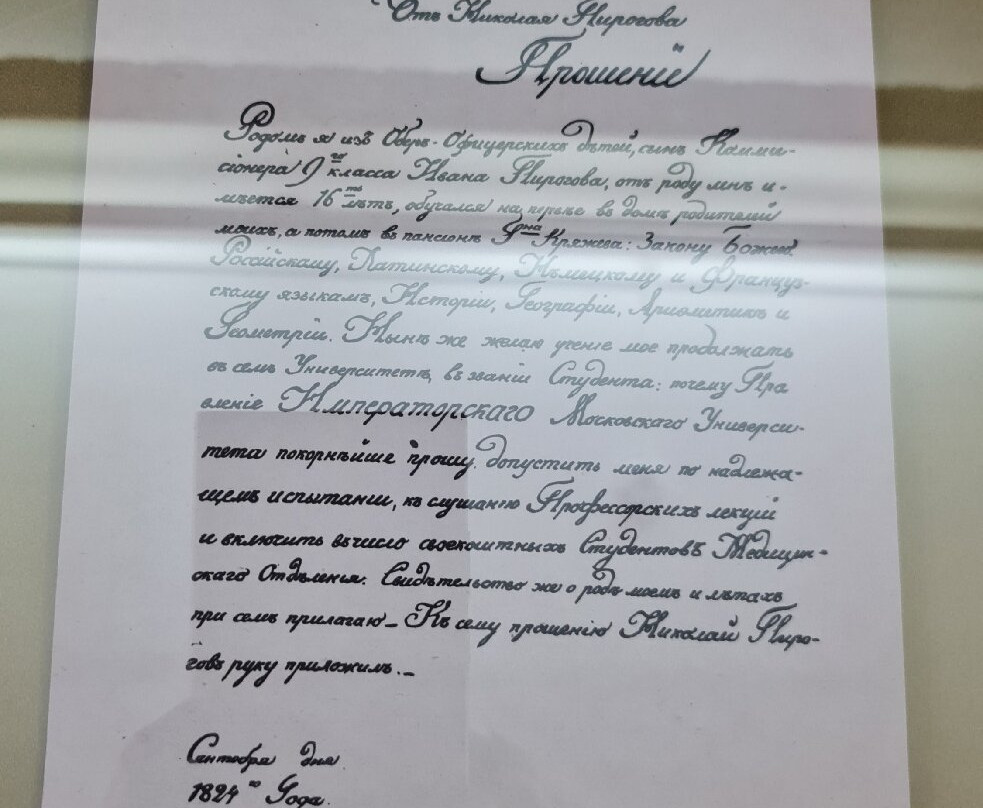 Отъ Николая Пирогова
Прошеніе
Родомъ я изъ Оберъ-Офицерскихъ дѣтей, сынъ Комми-
сіонера 9го класса Ивана Пирогова, отъ роду мнѣ и-
мѣется 16ть лѣтъ, обучался на передъ въ домѣ родителей
моихъ, а потомъ въ пансіонѣ Гдна Кряжева: Закону Божію
Россійскому, Латинскому, Нѣмецкому и Француз-
скому языкамъ, Исторіи, Географіи, Ариѳметикѣ и
Геометріи. Нынѣ же желаю ученіе мое продолжать
въ семъ Университетѣ, въ званіи Студента: почему Пра
вленіе Императорскаго Московскаго Универси-
тета покорнѣйше прошу допустить меня по надлежа-
щемъ испытаніи, къ слушанію Профессорскихъ лекцій
и включить въ число своекоштныхъ Студентовъ Медицин-
скаго Отдѣленья. Свидѣтельство же о родѣ моемъ и лѣтахъ
при семъ прилагаю – Къ сему прошенію Николай Пиро-
говъ руку приложилъ. –
Сентября дня
1824го Года.